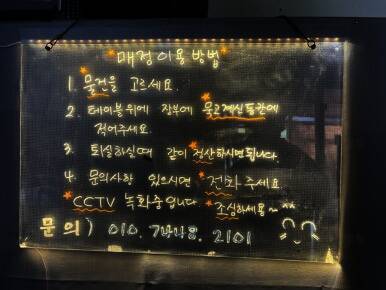 *매점이용방법*
1. 물건을 고르세요.
2. 테이블위에 장부에
적어주세요
3. 퇴실하실때 같이 정산하시면됩니다.
4. 문의사항 있으시면 전화 주세요
CCTV 녹화중입니다 조심하세용~ ^^
문의) 010. 2101